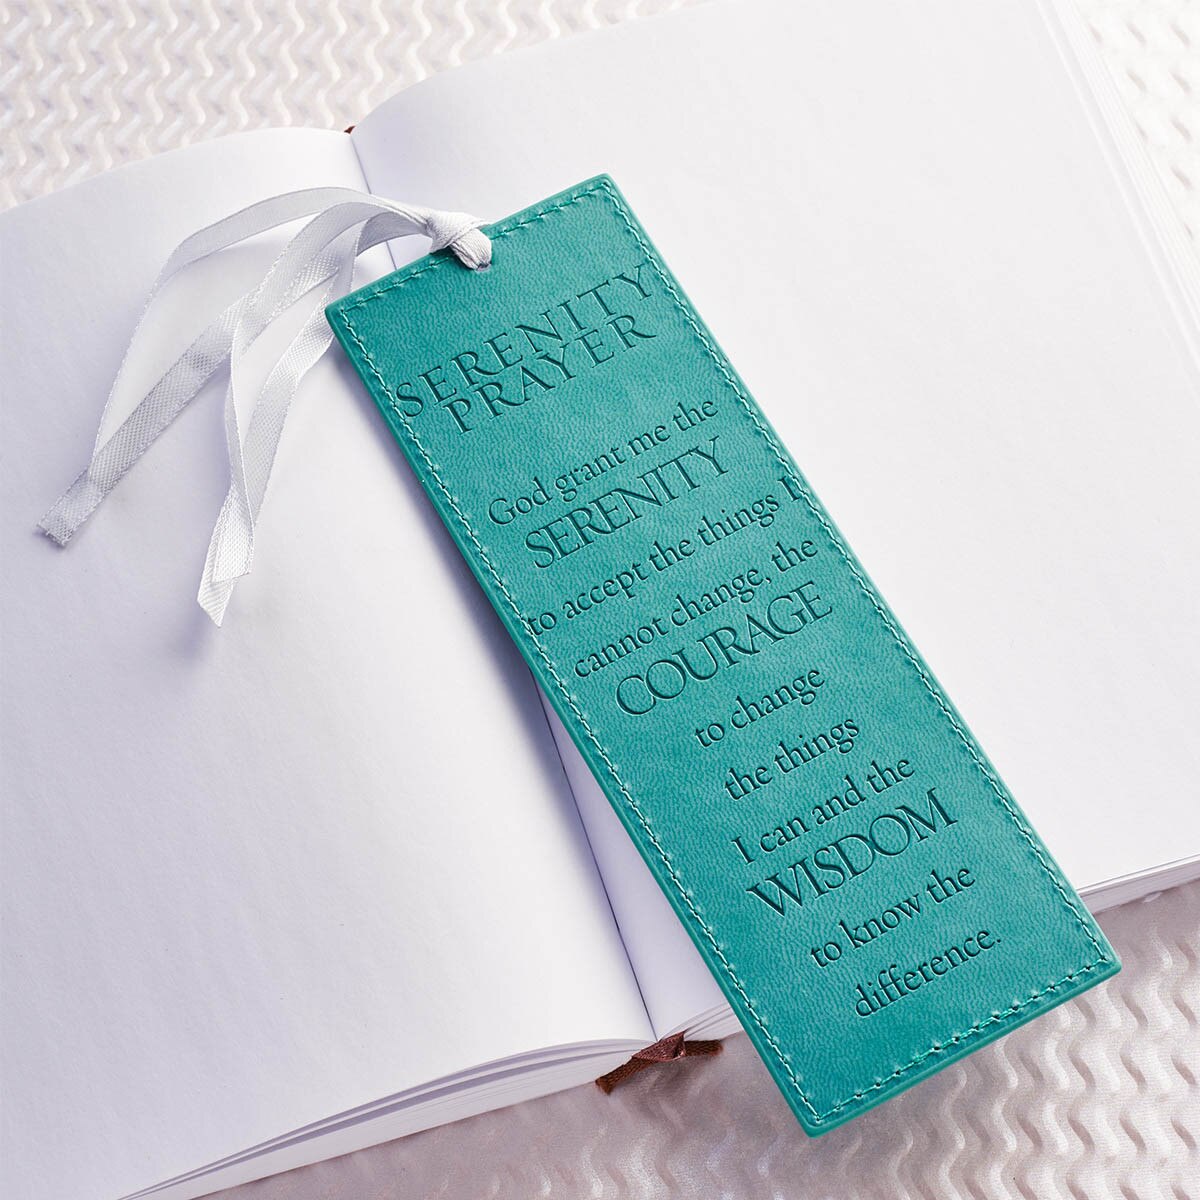 SERENITY
PRAYER
God grant me the
SERENITY
to accept the things I
cannot change, the
COURAGE
to change
the things
I can and the
WISDOM
to know the
difference.